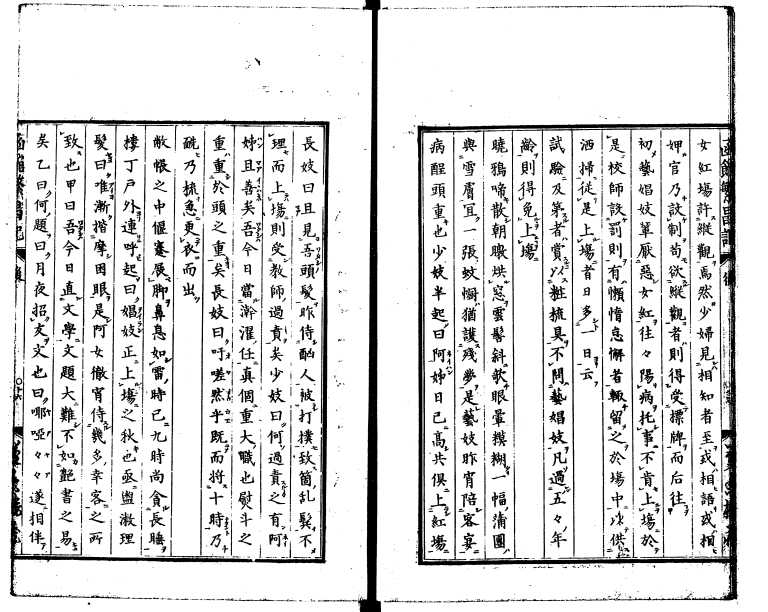 女紅場許縱觀焉然少婦見相知者至或相語或相
狎官乃設制苟欲縱觀者則得受標牌而后往
初藝娼妓輩厭惡女紅往々陽病托事不肯上塲於
是校師設罰則有懶惰怠懈者輙留之於塲中以供
洒掃従是上塲者日多一日云
試驗及第者賞以粧梳具不問藝娼妓凡過五々年
齢則得免上塲
曉鴉啼散朝暾烘窓雲鬂斜欹眼暈糢糊一幅蒲團
與雪膚宜一張蚊幮猶護殘夢是藝妓昨宵陪客宴
病醒頭重也少妓半起曰阿姊日已高共倶上紅塲
長妓曰且見吾頭髮昨侍酌人被打撲致箇乱鬂不
理而上塲則受教師過責矣少妓曰何過責之有阿
姊且善矣吾今日當澣濯任真個重大職也熨斗之
重重於頭之重矣長妓曰吁嗟然乎既而將十時乃
洗乃梳急更衣而出
敝帳之中偃蹇展脚鼻息如雷時已九時尚貪長睡
樓丁戸外連呼起曰娼妓正上塲之秋也亟盥漱理
髮曰唯漸揩摩困眼是阿女徹宵侍幾多幸客之所
致也甲曰吾今日直文學文題大難不如艶書之易
矣乙曰何題曰月夜招友文也曰哪啞々々遂相伴